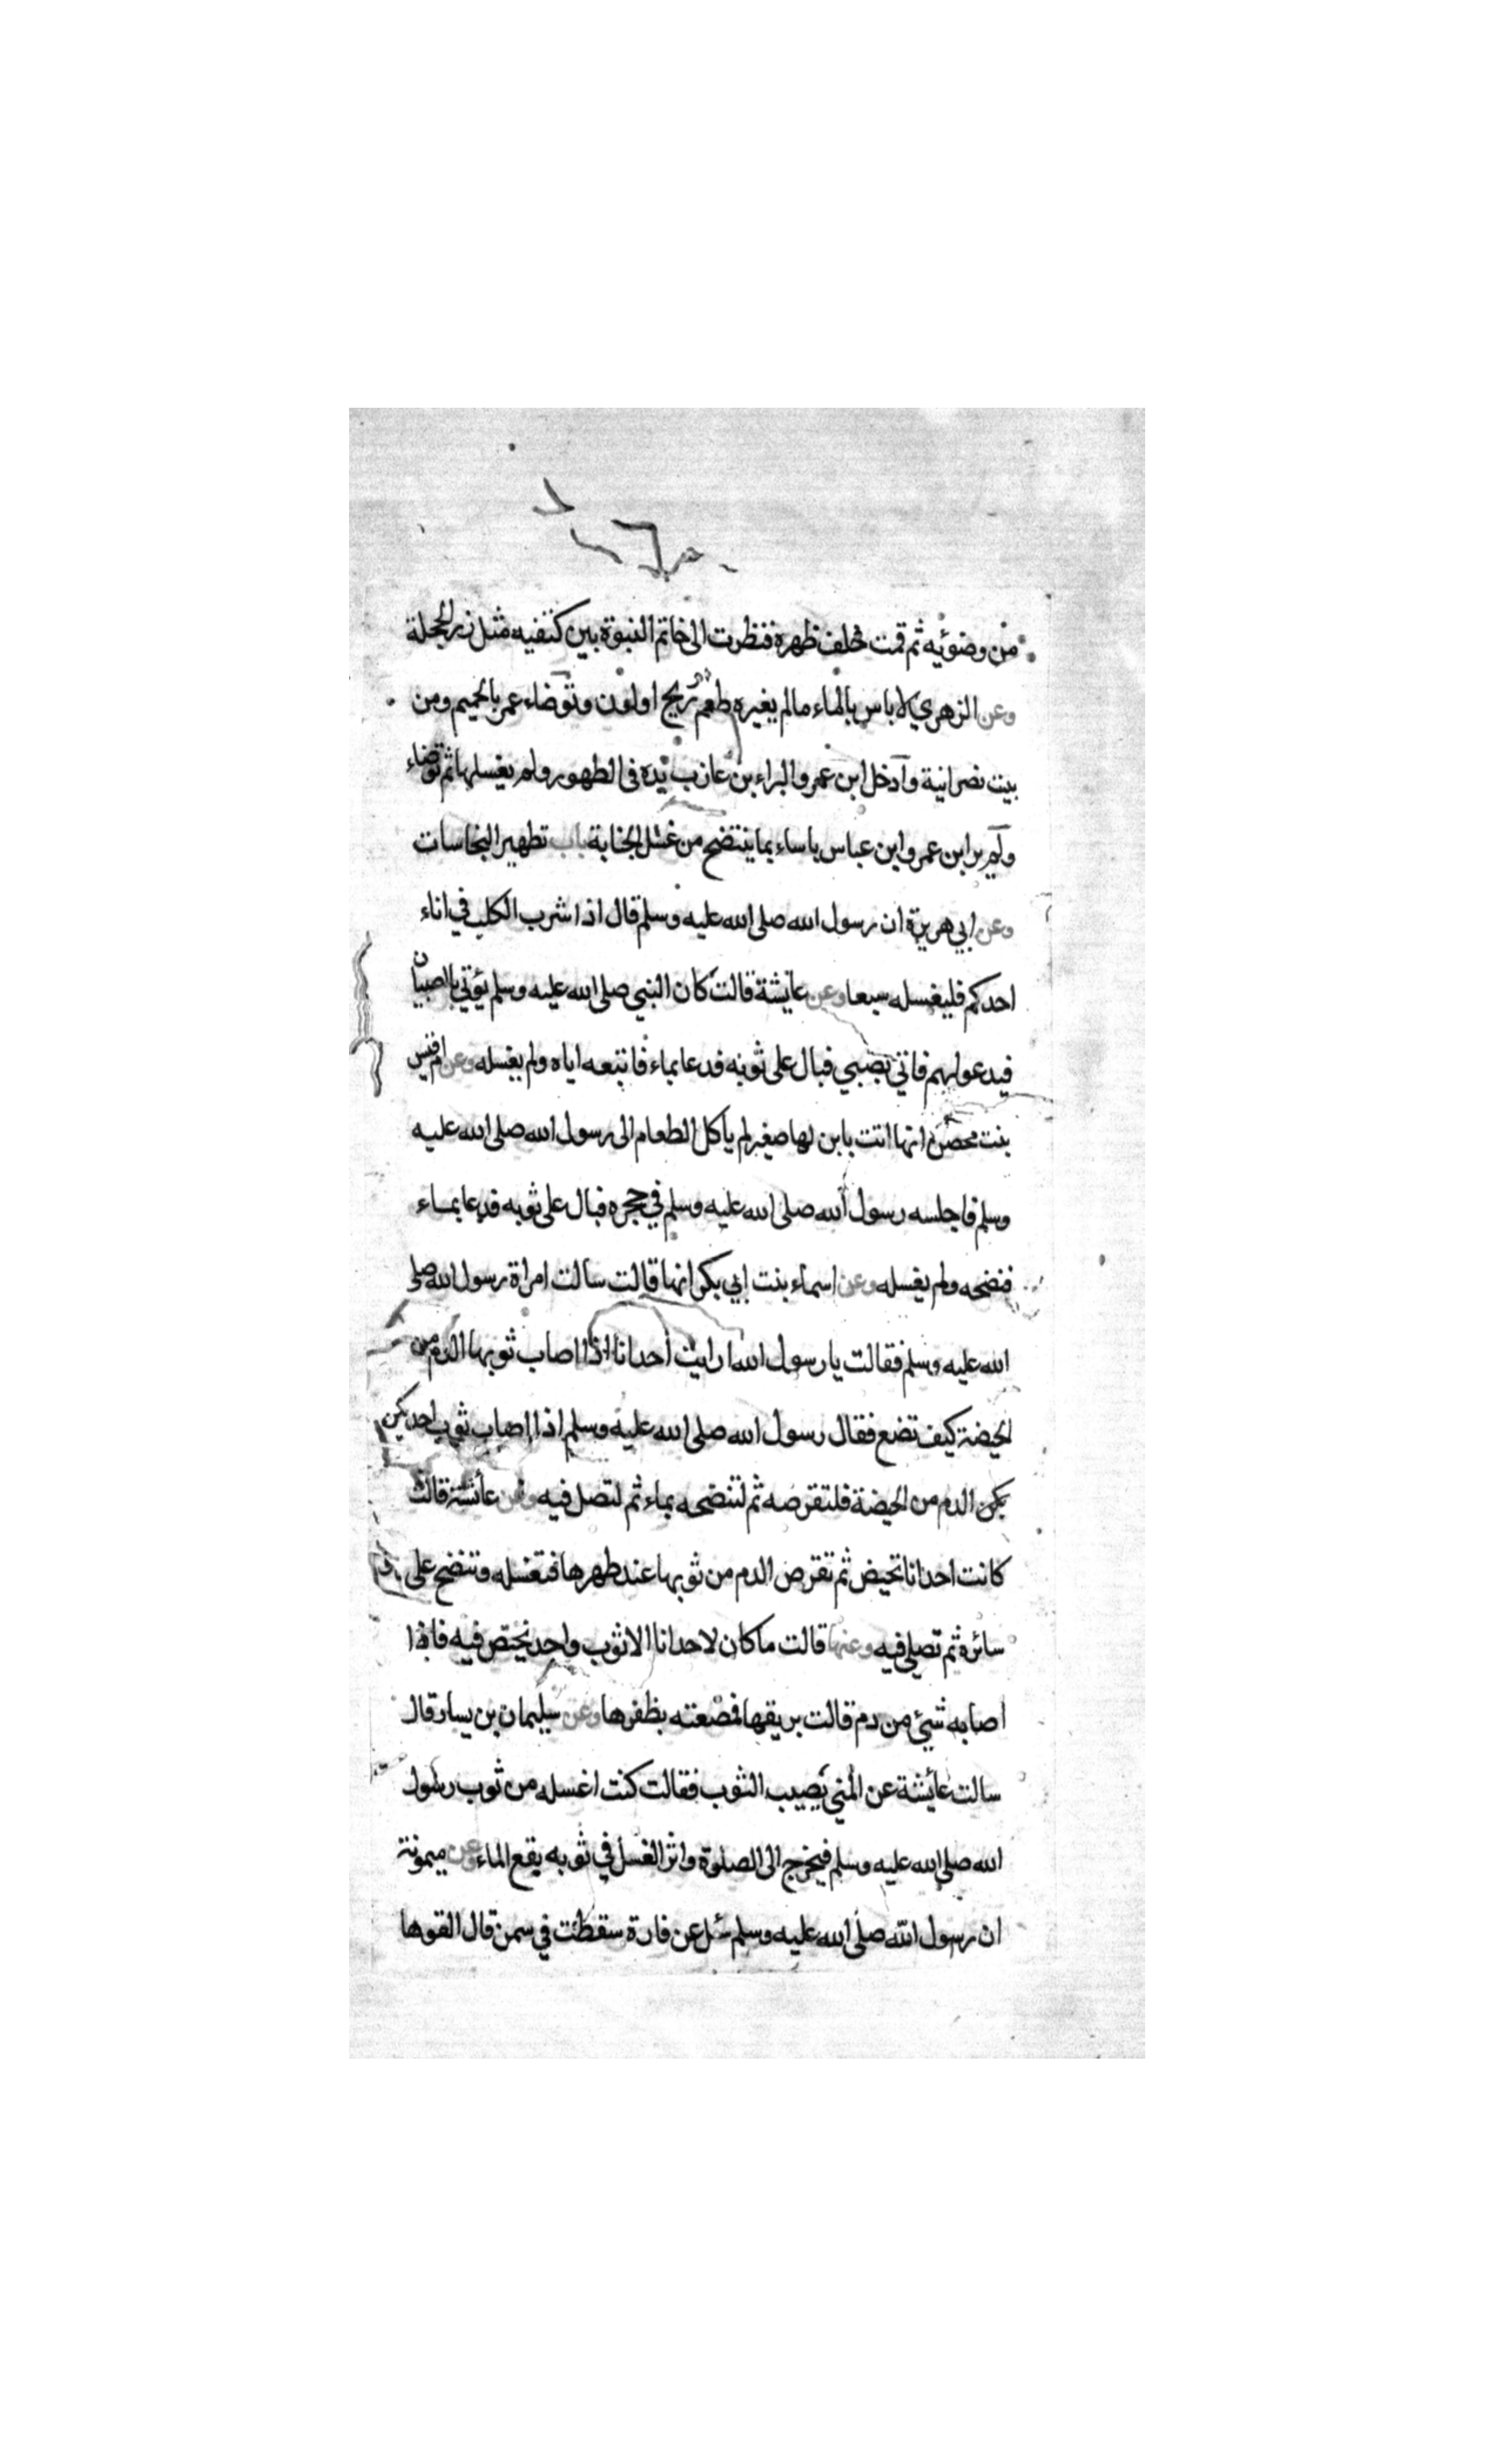 من وضوئيه ثم قمت خلف ظهره فنظرت الى خاتم النبوة بين كتفيه مثل زر الحجلة
وعن الزهري لا باس بالماء مالم يغيره طعم او ريح او لون وتوضاء عمر بالحميم ومن
بيت نصرانية وادخل ابن عمر والبراء بن عازب يده فى الطهور ولم يغسلها ثم توضاء
ولم ير ابن عمر وابن عباس باساء بما ينتضح من غسل الجنابة باب تطهير النجاسات
وعن ابي هريرة ان رسول الله صلى الله عليه وسلم قال اذا شرب الكلب في اناء
احدكم فليغسله سبعا وعن عائشة قالت كان النبي صلى الله عليه وسلم يؤتي بالصبيان
فيدعو لهم فاتي بصبي فبال على ثوبه فدعا بماء فاتبعه اياه ولم يغسله وعن ام قيس
بنت محصن انها اتت بابن لها صغير لم ياكل الطعام الى رسول الله صلى الله عليه
وسلم فاجلسه رسول الله صلى الله عليه وسلم في حجره فبال على ثوبه فدعا بماء
فنضحه ولم يغسله وعن اسماء بنت ابي بكر انها قالت سالت امراة رسول الله صلى
الله عليه وسلم فقالت يا رسول الله ارايت احدانا اذا اصاب ثوبها الدم من
الحيضة كيف تضع فقال رسول الله صلى الله عليه وسلم اذا اصاب ثوب احديكن
يكن الدم من الحيضة فلتقرصه ثم لتنضحه بماء ثم لتصل فيه وعن عائشة قالت
كانت احدانا تحيض ثم تقرص الدم من ثوبها عند طهرها فتغسله وتنضح على
سائره ثم تصلي فيه وعنها قالت ما كان لاحدانا الا ثوب واحد تحيض فيه فاذا
اصابه شيئ من دم قالت بريقها فمصعته بظفرها وعن سليمان بن يسار قال
سالت عائشة عن المني يصيب الثوب فقالت كنت اغسله من ثوب رسول
الله صلى الله عليه وسلم فيخرج الى الصلوة واثر الغسل في ثوبه بقع الماء وعن ميمونة
ان رسول الله صلى الله عليه وسلم سئل عن فارة سقطت في سمن قال القوها